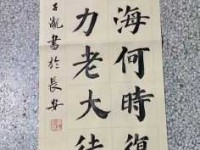 海何時復
力老大徒
書於長安